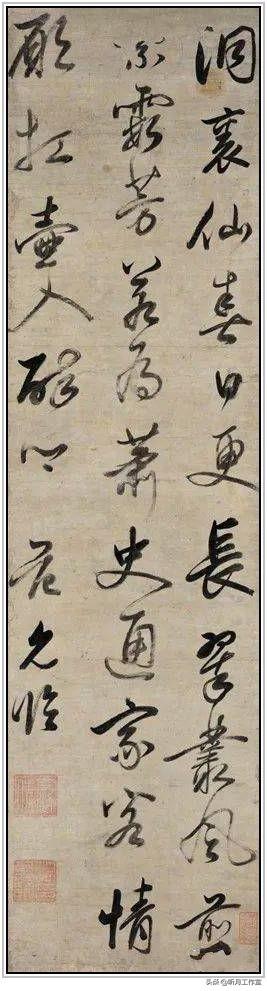 洞裏仙春日更長翠叢風剪
紫霞芳若為蕭史通家客情
願扛壺入醉鄉 范允臨
头条 @听月工作室